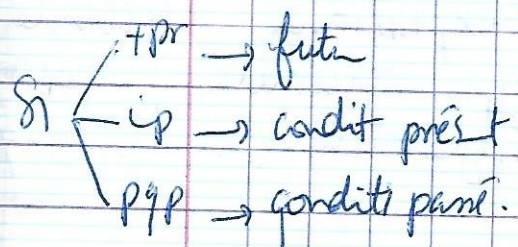 +pr → futu
Si ip → condit prést
pqp → condit passé.